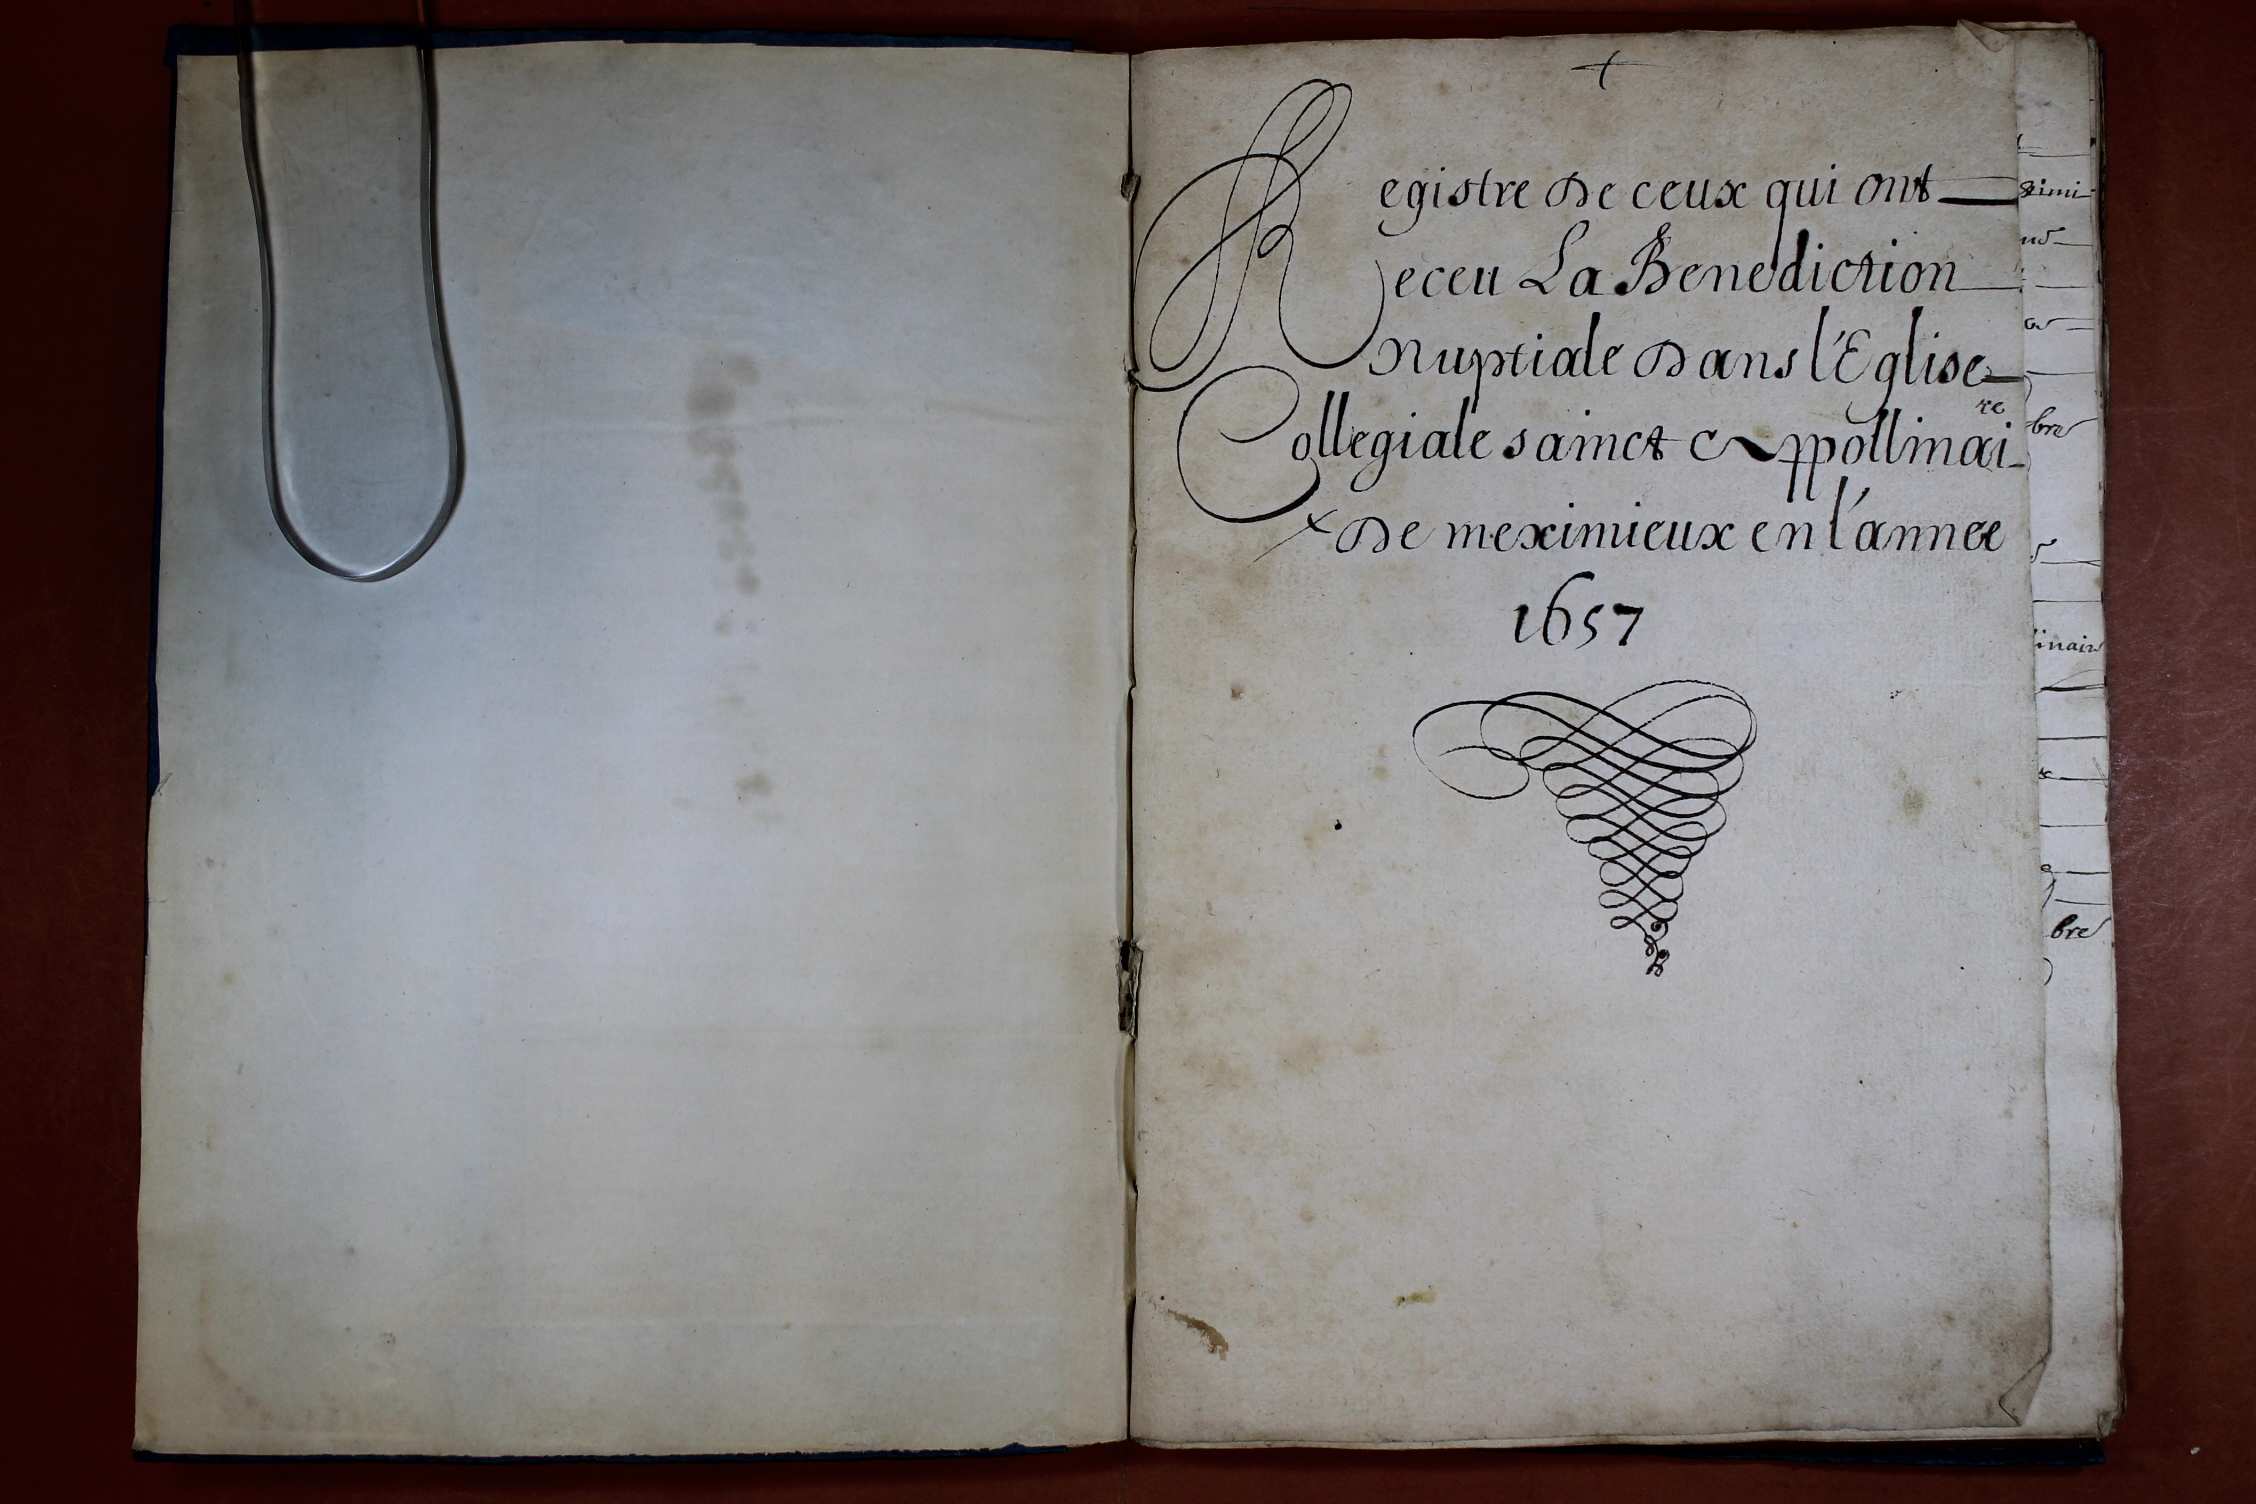 Registre De ceux qui ont
Receu La Benediction
nuptiale Dans l'Eglise
Collegiale sainct Appollinaire
De meximieux en l'annee
1657
ximi
bre
linaire
bre